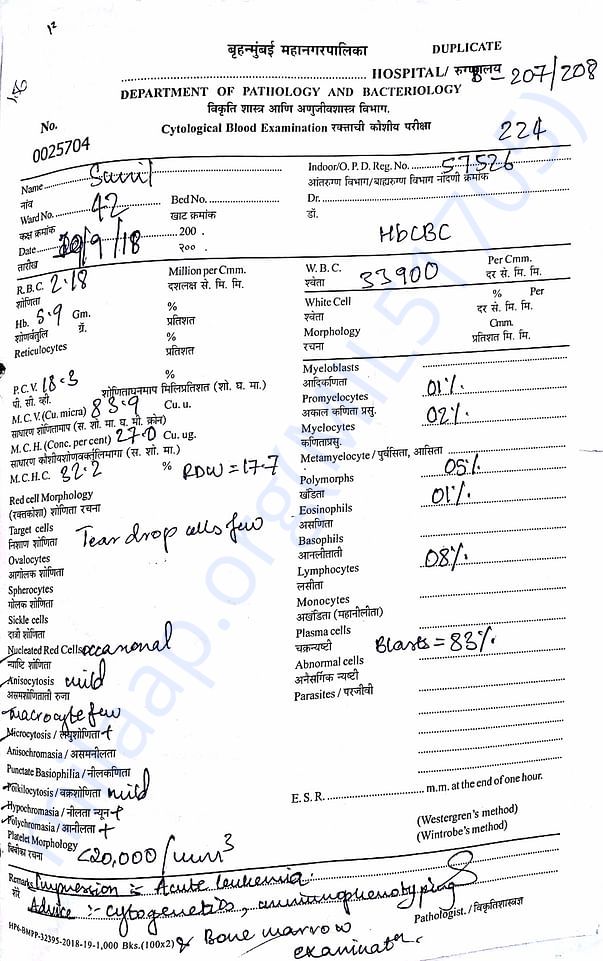 १२
बृहन्मुंबई महानगरपालिका
DUPLICATE
HOSPITAL/ रुग्णालय
207/208
DEPARTMENT OF PATHOLOGY AND BACTERIOLOGY
विकृति शास्त्र आणि अणुजीवशास्त्र विभाग.
No.
Cytological Blood Examination रक्ताची कोशीय परीक्षा
224
0025704
Name Sunil
नांव
Indoor/O. P. D. Reg. No. 57526
आंतरुग्ण विभाग/बाह्यरुग्ण विभाग नोंदणी क्रमांक
Ward No. 42 Bed No.
कक्ष क्रमांक खाट क्रमांक
Dr.
डॉ.
Date /9/18 200 .
तारीख २०० .
HbCBC
R.B.C. 2.18 Million per Cmm.
शोणिता दशलक्ष से. मि. मि.
Hb. 5.9 Gm. %
शोणवर्तुलि ग्रॅ. प्रतिशत
Reticulocytes %
प्रतिशत
P.C.V. 18.3 %
पी. सी. व्ही. शोणिताघनमाप मिलिप्रतिशत (शो. घ. मा.)
M.C.V. (Cu. micra) 83.9 Cu. u.
साधारण शोणितामाप (स. शो. मा. घ. मी. क्रोन)
M.C.H. (Conc. per cent) 27.0 Cu. ug.
साधारण कोशीयशोणवर्क्तुलिमागा (स. शो. मा.)
M.C.H.C. 32.2 % RDW = 17.7
Red cell Morphology
(रक्तकोशा) शोणिता रचना
Target cells
निशाण शोणिता
Tear drop cells few
Ovalocytes
आगोलक शोणिता
Spherocytes
गोलक शोणिता
Sickle cells
दात्री शोणिता
Nucleated Red Cells occasional
न्याष्टि शोणिता
Anisocytosis mild
असमशोणिताती रुजा
Macrocyte few
Microcytosis / लघुशोणिता +
Anisochromasia / असमनीलता
Punctate Basiophilia / नीलकणिता
Poikilocytosis / वक्रशोणिता mild
Hypochromasia / नीलता न्यून +
Polychromasia / आनीलता +
Platelet Morphology
बिंबीका रचना
<20,000 /mm3
W.B.C. 33900 Per Cmm.
श्वेता दर से. मि. मि.
White Cell % Per
श्वेता दर से. मि. मि.
Morphology Cmm.
रचना प्रतिशत मि. मि.
Myeloblasts
आदिकणिता
Promyelocytes 01%
अकाल कणिता प्रसु.
Myelocytes 02%
कणिताप्रसु.
Metamyelocyte / पुर्वसिता, आसिता
Polymorphs 05%
खंडिता
Eosinophils 01%
असणिता
Basophils
आनलीताती
Lymphocytes 08%
लसीता
Monocytes
अखंडिता (महानीलीता)
Plasma cells
चक्रन्यष्टी
Blasts = 83%
Abnormal cells
अनैसर्गिक न्यष्टी
Parasites / परजीवी
E. S. R. m.m. at the end of one hour.
(Westergren's method)
(Wintrobe's method)
Remarks Impression :- Acute leukemia.
शेरे
Advice :- cytogenetics, immunophenotyping
& Bone marrow
examinatn.
Pathologist. / विकृतिशास्त्रज्ञ
HP6-BMPP-32395-2018-19-1,000 Bks.(100x2)
milaap.org(MIL517705)